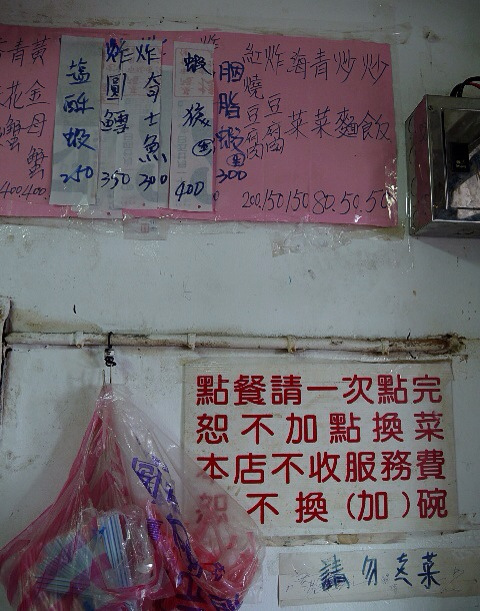 炒飯 50
炒麵 50
青菜 80
海菜 150
炸豆腐 150
紅燒豆腐 200
胭脂蝦 300
蝦猴 400
炸奇士魚 300
炸圓鱈 350
塩酥蝦 250
黃金母蟹 400
青花蟹 400
點餐請一次點完
恕不加點換菜
本店不收服務費
恕不換(加)碗
請勿烹菜